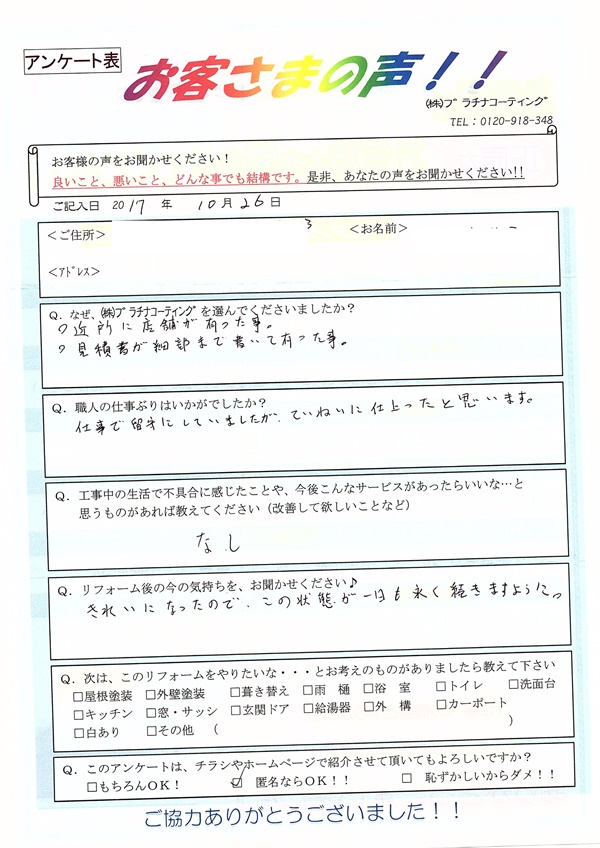 アンケート表
お客さまの声！！
㈱プラチナコーティング
TEL：0120-918-348
お客様の声をお聞かせください！
良いこと、悪いこと、どんな事でも結構です。是非、あなたの声をお聞かせください!!
ご記入日 2017 年 10月26日
＜ご住所＞ ＜お名前＞
＜ｱﾄﾞﾚｽ＞
Q．なぜ、㈱プラチナコーティングを選んでくださいましたか？
近所に店舗が有った事。
見積書が細部まで書いて有った事。
Q．職人の仕事ぶりはいかがでしたか？
仕事で留守にしていましたが、ていねいに仕上ったと思います。
Q．工事中の生活で不具合に感じたことや、今後こんなサービスがあったらいいな…と
思うものがあれば教えてください（改善して欲しいことなど）
なし
Q．リフォーム後の今の気持ちを、お聞かせください♪
きれいになったので、この状態が一日も永く続きますように。
Q．次は、このリフォームをやりたいな・・・とお考えのものがありましたら教えて下さい
□屋根塗装 □外壁塗装 □葺き替え □雨　樋 □浴　室 □トイレ □洗面台
□キッチン □窓・サッシ □玄関ドア □給湯器 □外　構 □カーポート
□白あり □その他 （ ）
Q．このアンケートは、チラシやホームページで紹介させて頂いてもよろしいですか？
□もちろんOK！ ☑ 匿名ならOK！！ □ 恥ずかしいからダメ！！
ご協力ありがとうございました！！